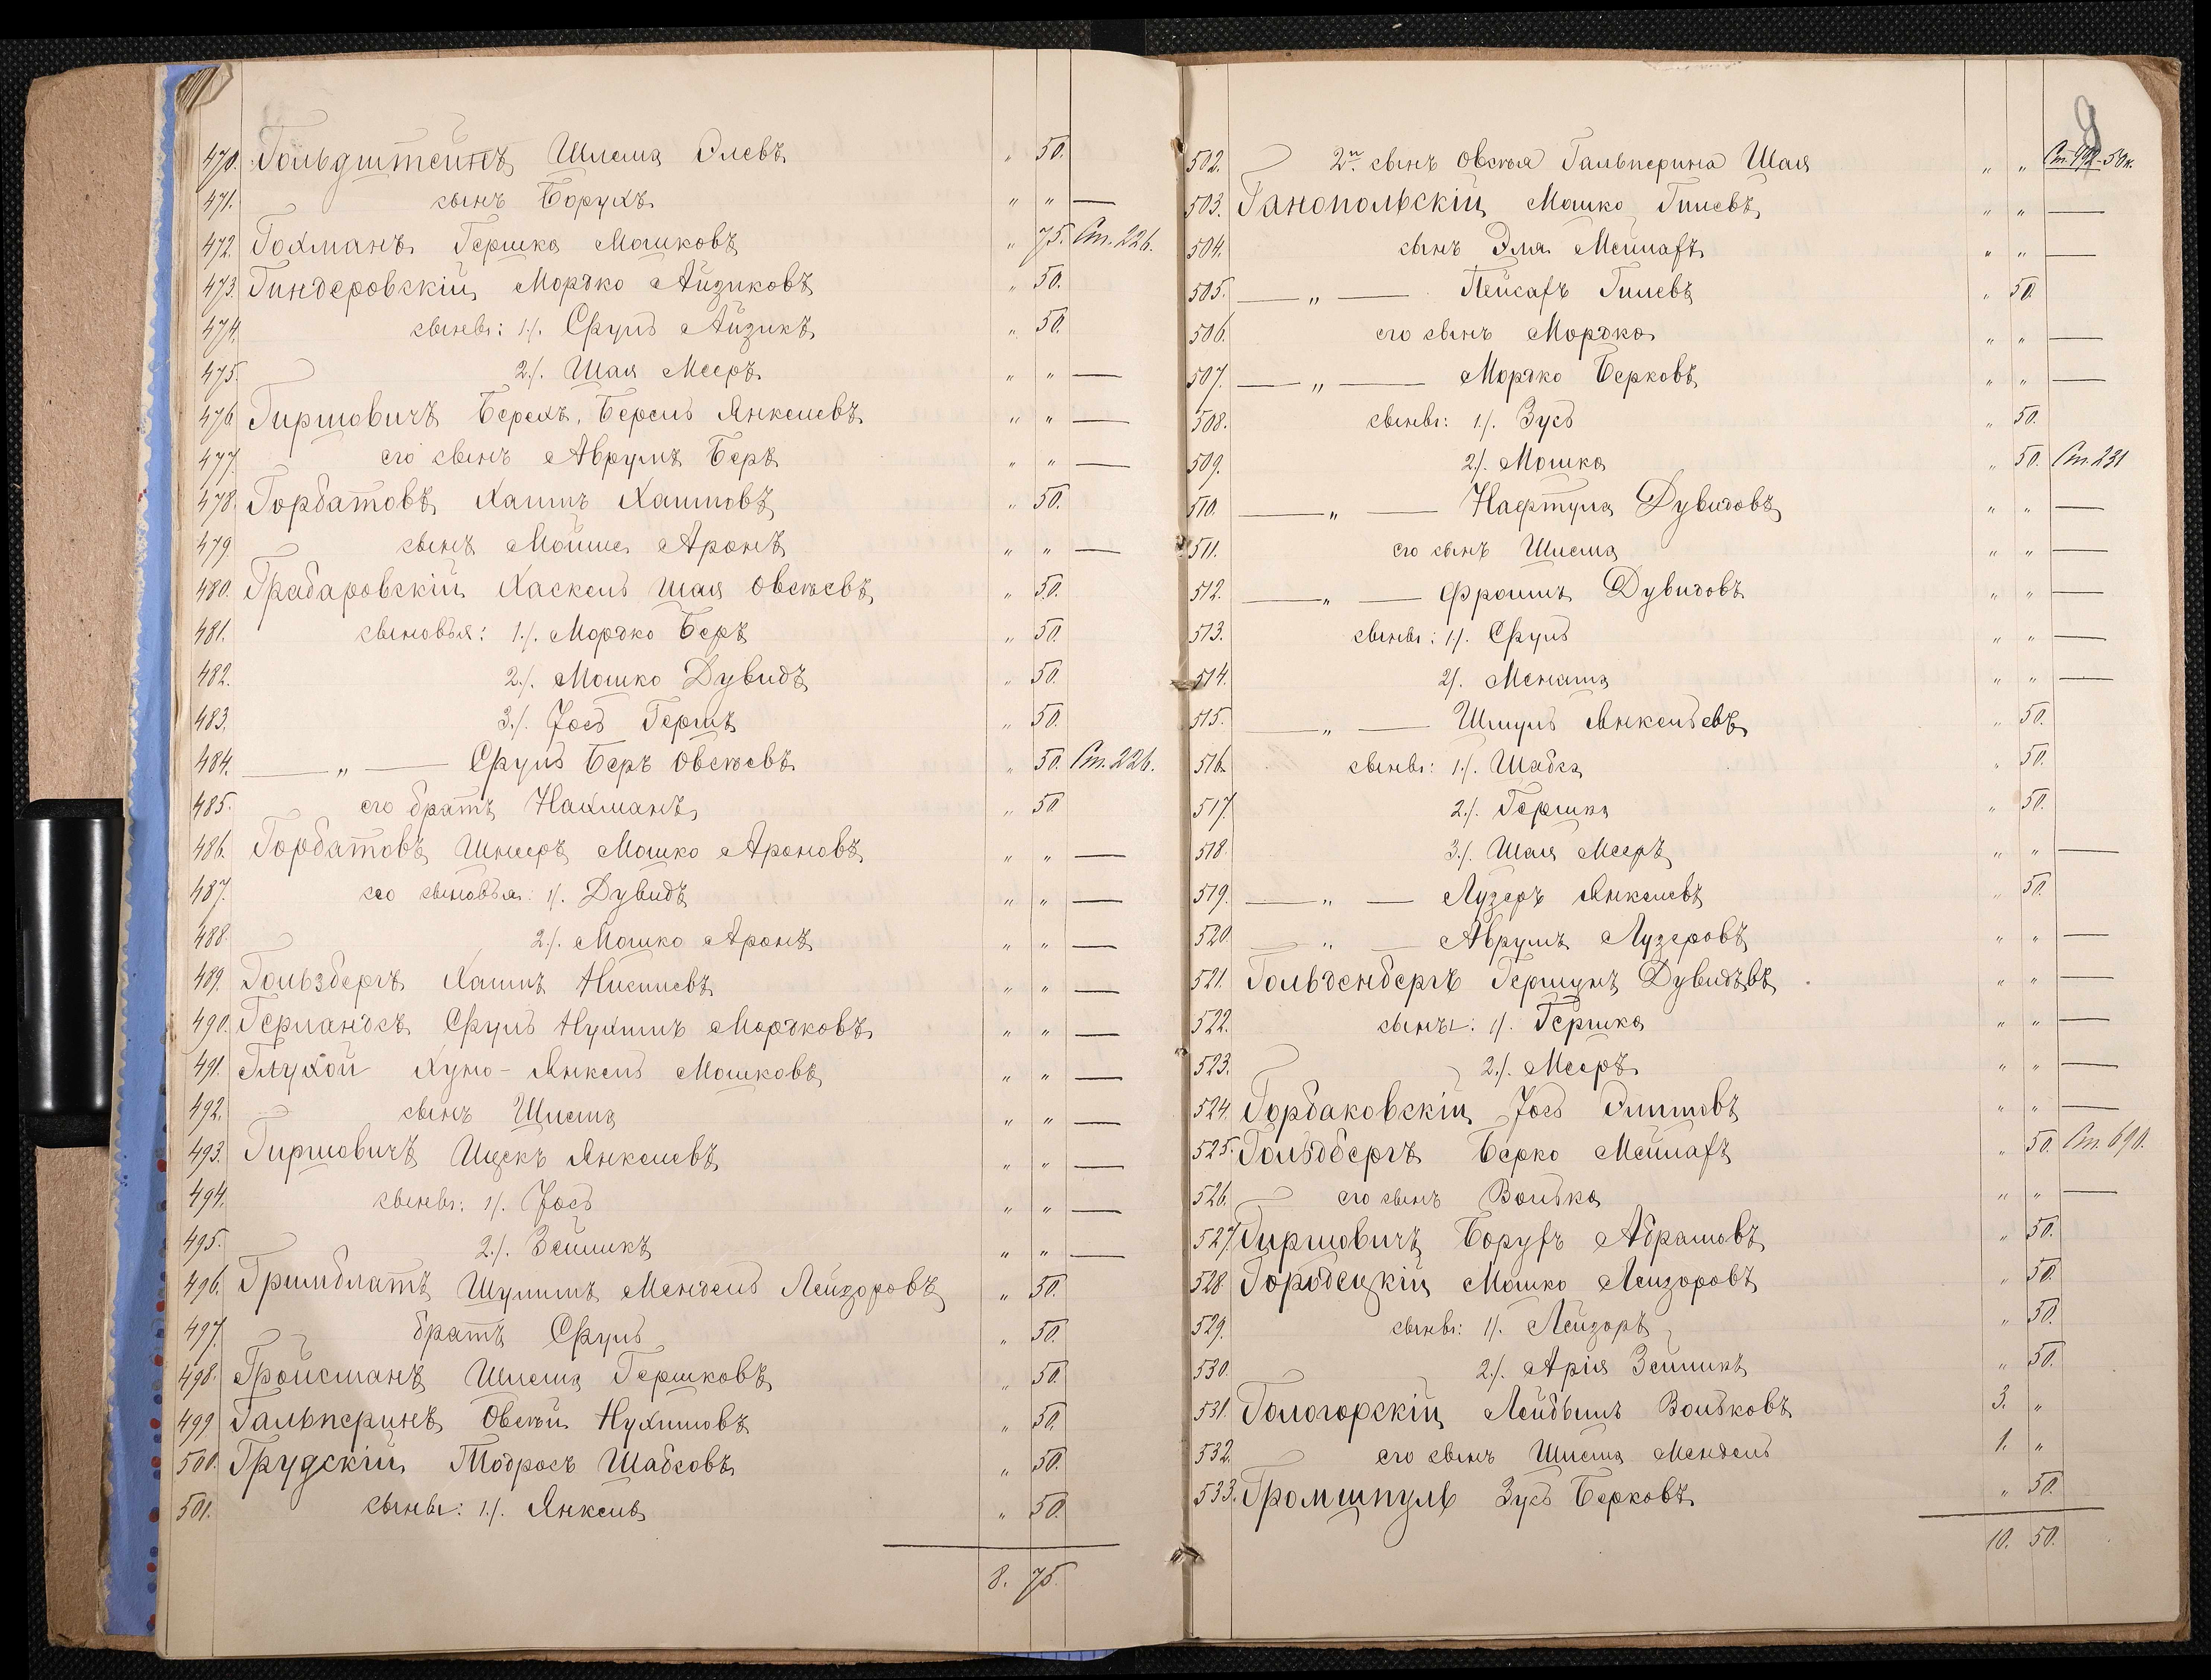 470. Гольдштейнъ Шлема Элевъ „ 50.
471. сынъ Борухъ „ „ —
472. Гохманъ Гершко Мошковъ „ 75. Ст. 226.
473. Гиндеровскій Мордко Айзиковъ „ 50.
474. сыновья: 1/. Сруль Айзикъ „ 50.
475. 2/. Шая Мееръ „ „ —
476. Гиршовичъ Берехъ, Берель Янкелевъ „ „ —
477. его сынъ Аврумъ Беръ „ „ —
478. Горбатовъ Хаимъ Хаимовъ „ 50.
479. сынъ Мойше Аронъ „ „ —
480. Грабаровскій Хаскель Шая Овсѣевъ „ 50.
481. сыновья: 1/. Мордко Беръ „ 50.
482. 2./. Мошко Дувидъ „ 50.
483. 3./. Іось Гершъ „ 50.
484. — „ — Сруль Беръ Овсѣевъ „ 50. Ст. 226.
485. его братъ Нахманъ „ 50
486. Горбатовъ Шнееръ Мошко Ароновъ „ „ —
487. его сыновья: 1/. Дувидъ „ „ —
488. 2./. Мошко Аронъ „ „ —
489. Гользбергъ Хаимъ „ „ —
490. Германъ Сруль Нухимъ Мордковъ „ „ —
491. Глухой Хуно-Янкель Мошковъ „ „ —
492. сынъ Шлема „ „ —
493. Гиршовичъ Ицекъ Янкелевъ „ „ —
494. сыновья: 1/. Іось „ „ —
495. 2./. Зейликъ „ „ —
496. Гринблатъ Шулимъ Мендель Лейзоровъ „ 50.
497. братъ Сруль „ 50.
498. Гройсманъ Шлема Гершковъ „ 50.
499 Гальперинъ Овсѣй Нухимовъ „ 50.
500. Грудскій Тодросъ Шабсовъ „ 50.
501. сыны: 1./. Янкель „ 50.
8. 75.
9
502. 2й сынъ Овсѣя Гальперина Шая „ „ Ст. 992-50к.
503. Ганопольскій Мошко Гилевъ „ „ —
504. сынъ Эля Мейлахъ „ „ —
505. — „ — Пейсахъ Гилевъ „ 50.
506. его сынъ Мордко „ „ —
507. — „ — Мордко Берковъ „ „ —
508. сыны: 1/. Зусь „ 50.
509. 2/. Мошко „ 50. Ст. 231
510. — „ — Нафтула Дувидовъ „ „ —
511. его сынъ Шлема „ „ —
512. — „ — Фроимъ Дувидовъ „ „ —
513. сыны: 1/. Сруль „ „ —
514. 2/. Менаша „ „ —
515. — „ — Шмуль Янкельевъ „ 50.
516. сыны: 1/. Шабса „ 50.
517. 2./. Гершко „ 50.
518. 3./. Шая Мееръ „ „ —
519. — „ — Лузеръ Янкелевъ „ 50.
520. — „ — Аврумъ Лузеровъ „ „ —
521. Гольденбергъ Гершунъ Дувидовъ „ „ —
522. сыны: 1/. Гершко „ „ —
523. 2./. Мееръ „ „ —
524. Горбаковскій Іось „ „ —
525. Гольдбергъ Берко Мейлахъ „ 50. Ст. 690.
526. его сынъ Волько „ „ —
527. Гиршовичъ Борухъ Абрамовъ „ 50.
528 Городецкій Мошко Лейзоровъ „ 50.
529. сыны: 1/. Лейзоръ „ 50.
530. 2/. Арія Зейликъ „ 50.
531. Гологорскій Лейбышъ Вольковъ 3. „
532. его сынъ Шлема Мендель 1. „
533. Громшпуль Зусь Берковъ „ 50.
10. 50.